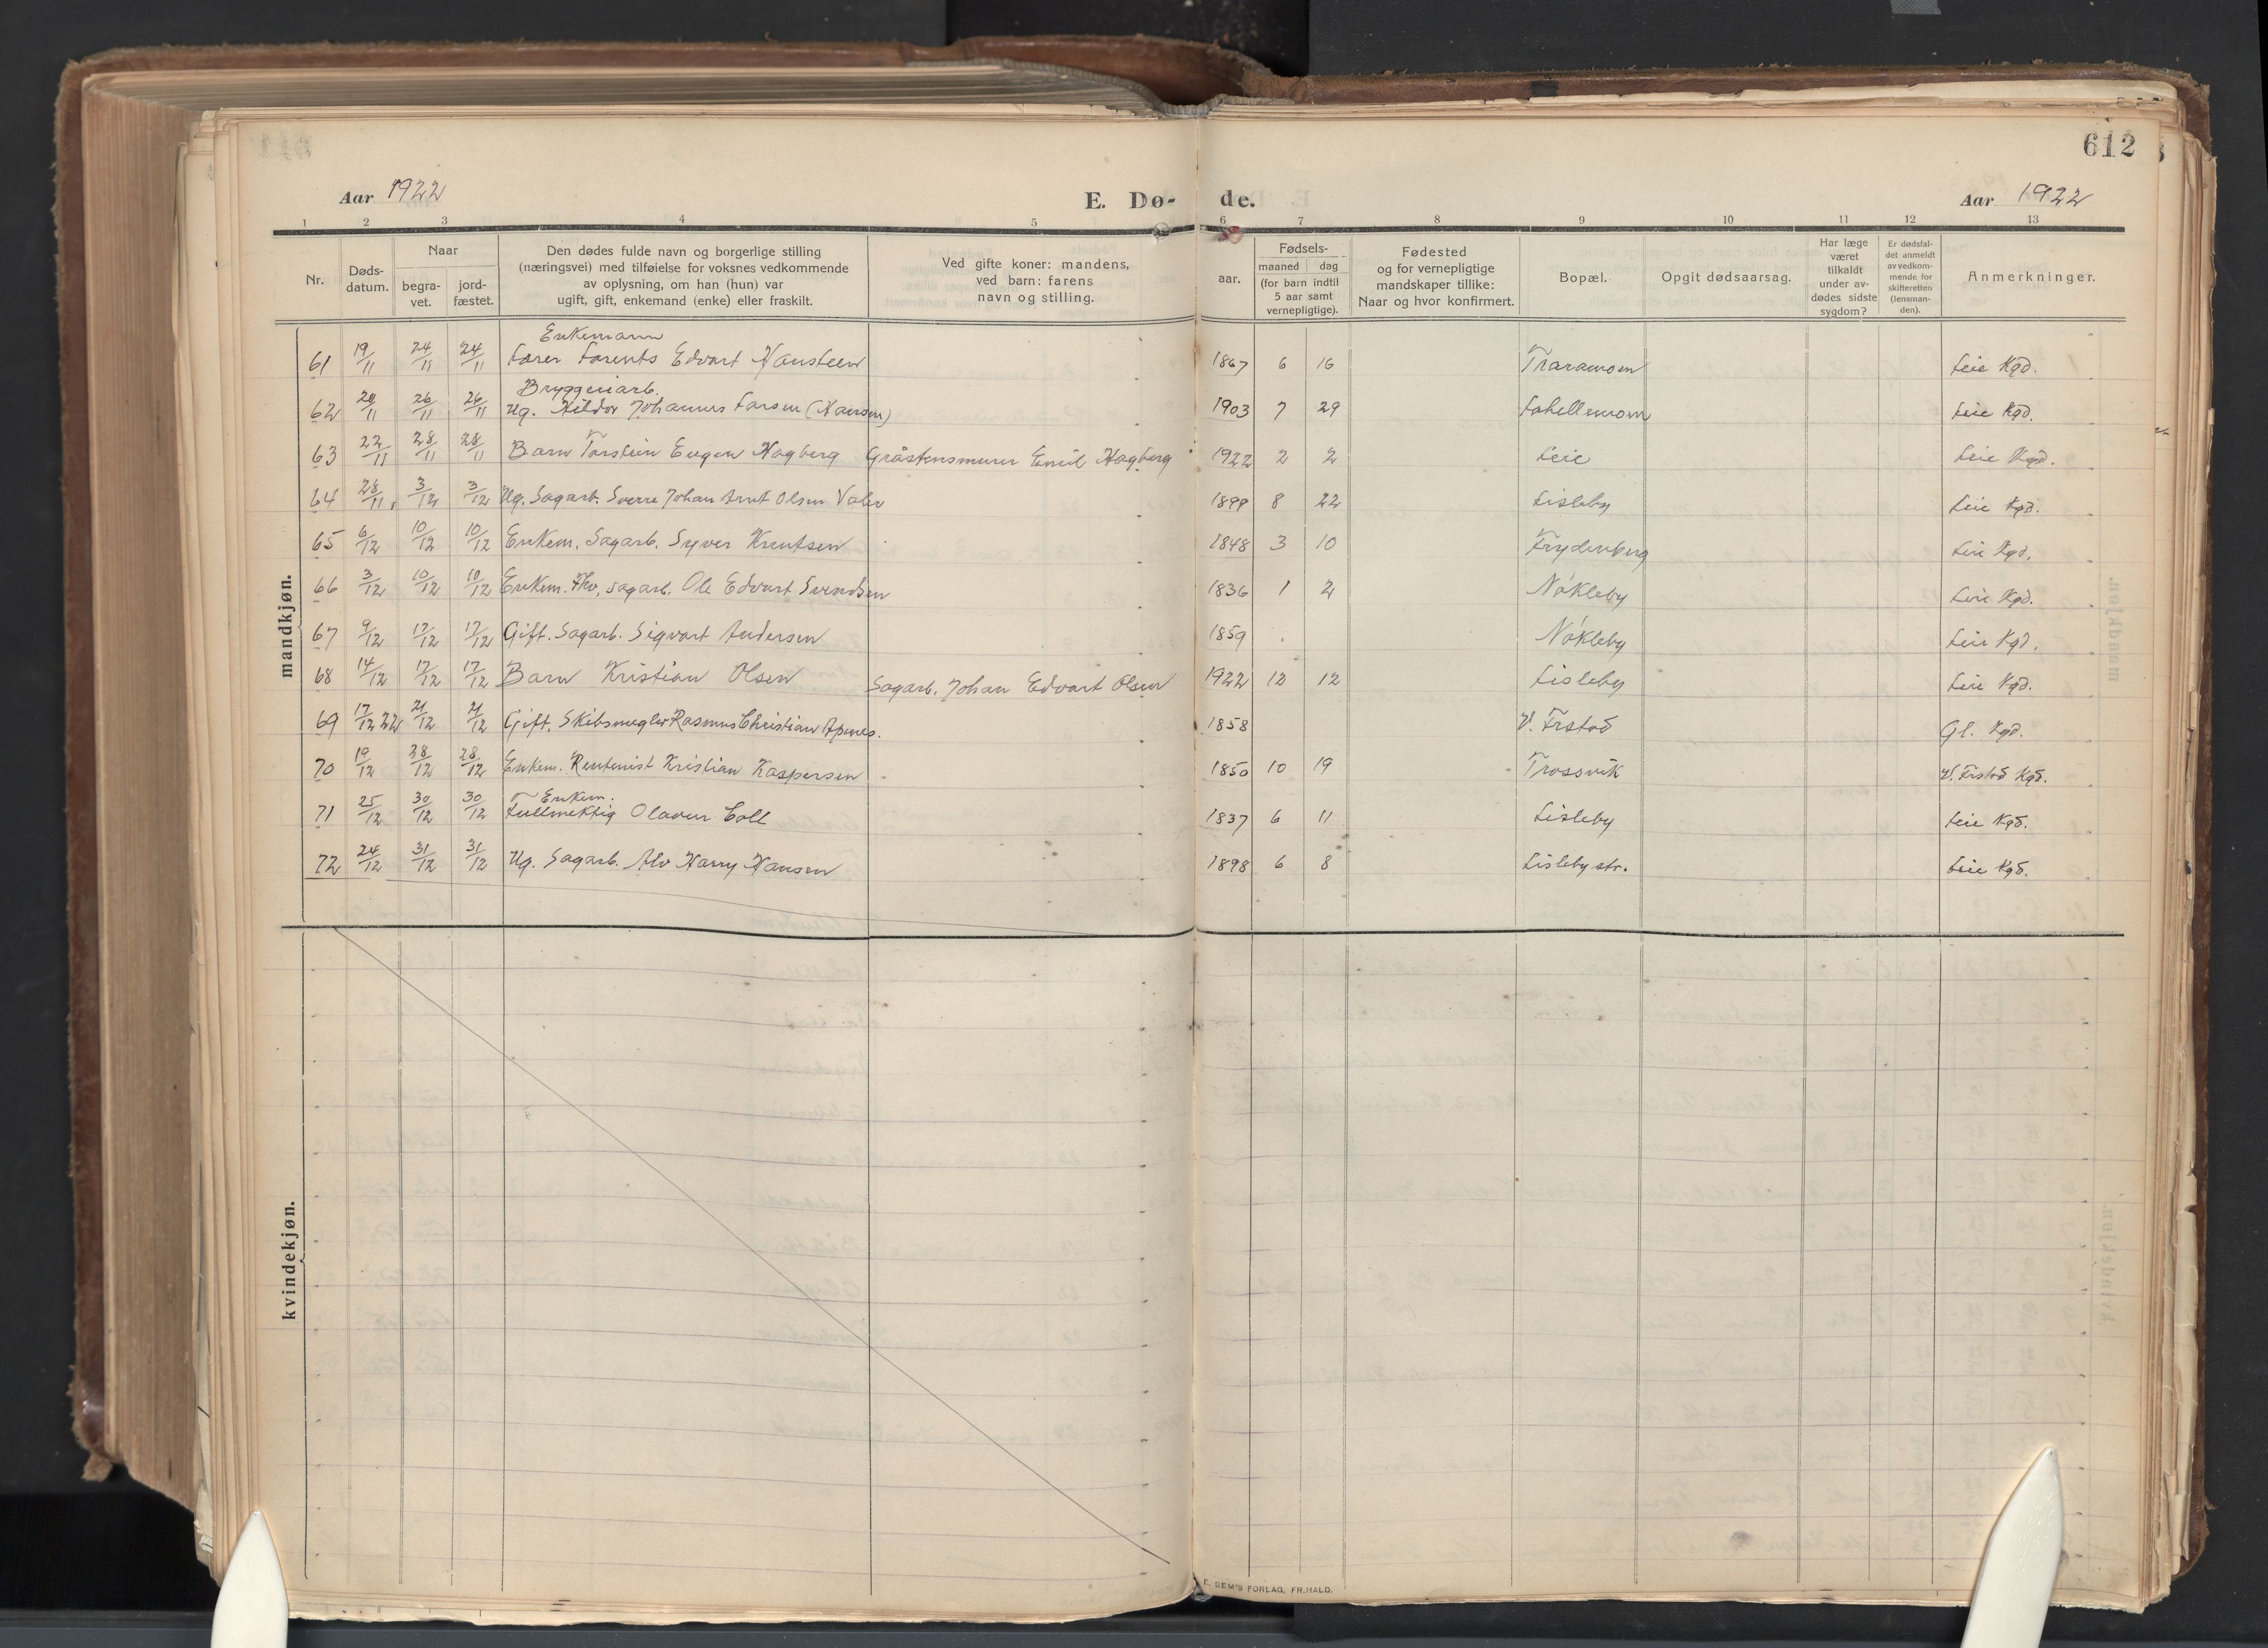 612
Aar 1922 E. Dø- de. Aar 1922
1 2 3 4 5 6 7 8 9 10 11 12 13
Nr. Døds-datum. Naar begra-vet. jord-fæstet. Den dødes fulde navn og borgerlige stilling (næringsvei) med tilføielse for voksnes vedkommende av oplysning, om han (hun) var ugift, gift, enkemand (enke) eller fraskilt. Ved gifte koner: mandens, ved barn: farens navn og stilling. aar. Fødsels- maaned dag (for barn indtil 5 aar samt vernepligtige). Fødested og for vernepligtige mandskaper tillike: Naar og hvor konfirmert. Bopæl. Opgit dødsaarsag. Har læge været tilkaldt under av-dødes sidste sygdom? Er dødsfal-det anmeldt av vedkom-mende for skifteretten (lensman-den). Anmerkninger.
mandkjøn.
Enkemann
61 19/11 24/11 24/11 Lærer Larents Edvart Hansteen 1867 6 16 Traramoen Leie Kgd.
Bryggeriarb.
62 20/11 26/11 26/11 Ug. Hildor Johannes Larsen (Hansen) 1903 7 29 Lahellemoen Leie Kgd.
63 22/11 28/11 28/11 Barn Torstein Eugen Hagberg Gråstensmurer Emil Hagberg 1922 2 2 Leie Leie Kgd.
64 28/11 3/12 3/12 Ug. Sagarb. Sverre Johan Arnt Olsen Valer 1899 8 22 Lisleby Leie Kgd.
65 6/12 10/12 10/12 Enkem. Sagarb. Syver Knutsen 1848 3 10 Frydenberg Leie Kgd.
66 3/12 10/12 10/12 Enkem. Fhv. sagarb. Ole Edvart Svendsen 1836 1 2 Nøkleby Leie Kgd.
67 9/12 17/12 17/12 Gift. Sagarb. Sigvart Andersen 1859 Nøkleby Leie Kgd.
68 14/12 17/12 17/12 Barn Kristian Olsen Sagarb. Johan Edvart Olsen 1922 12 12 Lisleby Leie Kgd.
69 17/12 22 21/12 21/12 Gift. Skibsmegler Rasmus Christian Apenes. 1858 V. Frstad Gl. Kgd.
70 19/12 28/12 28/12 Enkem. Rentenist Kristian Kaspersen 1850 10 19 Trosvik V. Frstad Kgd.
Enkem.
71 25/12 30/12 30/12 Fullmektig Olaven Coll 1837 6 11 Lisleby Leie Kgd.
72 24/12 31/12 31/12 Ug. Sagarb. Alv Harry Hansen 1898 6 8 Lisleby str. Leie Kgd.
kvindekjøn.
E. SEM'S FORLAG, FR.HALD.